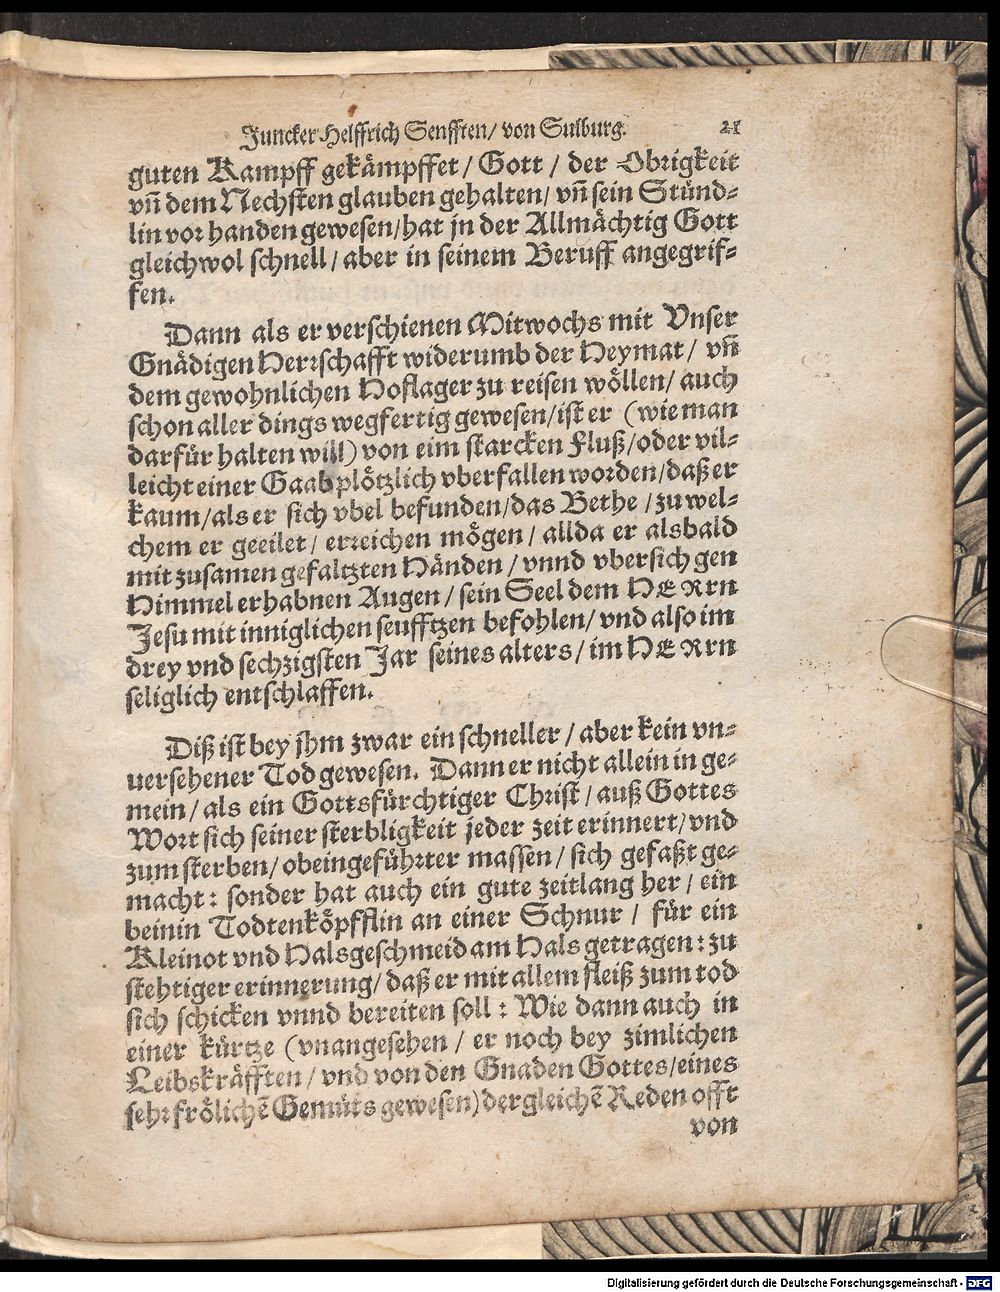 Juncker Helffrich Senfften/ von Sulburg. 21
guten Kampff gekämpffet/ Gott/ der Obrigkeit
vñ dem Nechsten glauben gehalten/ vñ sein Stünd-
lin vorhanden gewesen/hat jn der Allmächtig Gott
gleichwol schnell/ aber in seinem Beruff angegrif-
fen.
Dann als er verschienen Mitwochs mit Vnser
Gnädigen Herrschafft widerumb der Heymat/ vñ
dem gewohnlichen Hoflager zu reisen wöllen/ auch
schon aller dings wegfertig gewesen/ist er (wie man
darfür halten will) von eim starcken Fluß/oder vil-
leicht einer Gaab plötzlich vberfallen worden/daß er
kaum/als er sich vbel befunden/das Bethe/zu wel-
chem er geeilet/ erreichen mögen/ allda er alsbald
mit zusamen gefaltzten Händen/ vnnd vbersich gen
Himmel erhabnen Augen/ sein Seel dem HERrn
Jesu mit inniglichen seufftzen befohlen/ vnd also im
drey vnd sechzigsten Jar seines alters/ im HERrn
seliglich entschlaffen.
Diß ist bey jhm zwar ein schneller/ aber kein vn-
uersehener Tod gewesen. Dann er nicht allein in ge-
mein/ als ein Gottsfürchtiger Christ/ auß Gottes
Wort sich seiner sterbligkeit jeder zeit erinnert/vnd
zum sterben/ obeingeführter massen/ sich gefaßt ge-
macht: sonder hat auch ein gute zeitlang her/ ein
beinin Todtenköpfflin an einer Schnur/ für ein
Kleinot vnd Halsgeschmeid am Hals getragen: zu
stehtiger erinnerung/ daß er mit allem fleiß zum tod
sich schicken vnnd bereiten soll: Wie dann auch in
einer kürtze (vnangesehen/ er noch bey zimlichen
Leibskräfften/ vnd von den Gnaden Gottes/eines
sehr frölichē Gemüts gewesen) dergleichē Reden offt
von
Digitalisierung gefördert durch die Deutsche Forschungsgemeinschaft - DFG